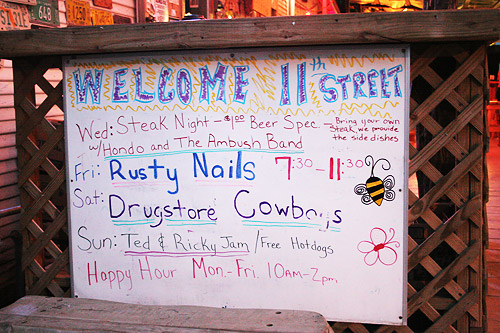 648
WELCOME 11th STREET
Wed: Steak Night - $1.00 Beer Spec. - Bring your own
steak, we provide
the side dishes
w/Hondo and The Ambush Band
Fri: Rusty Nails 7:30 - 11:30
Sat: Drugstore Cowboys
Sun: Ted & Ricky Jam / Free Hotdogs
Happy Hour Mon.-Fri. 10AM-2pm